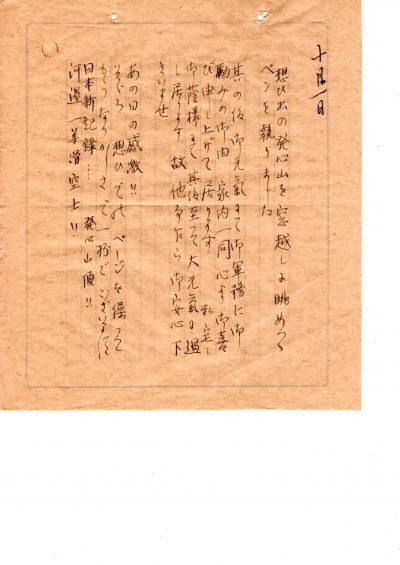 十月一日
想ひ出の発心山を窓越しに眺めつゝ
ペンを執りました
其の後御元氣にて御軍務に御
勵みの御由 家内一同心より御喜
び申し上げて居ります 私宅も
御蔭様にて其後至って大元氣で過
し居ります故 他事乍ら御安心下
さいませ
あの日の感激!!
そゞろ 想ひでの ページを繰って
なつかしさで一杯でございます
日本新記録… 発心山頂!!
河邊一等滑空士!!